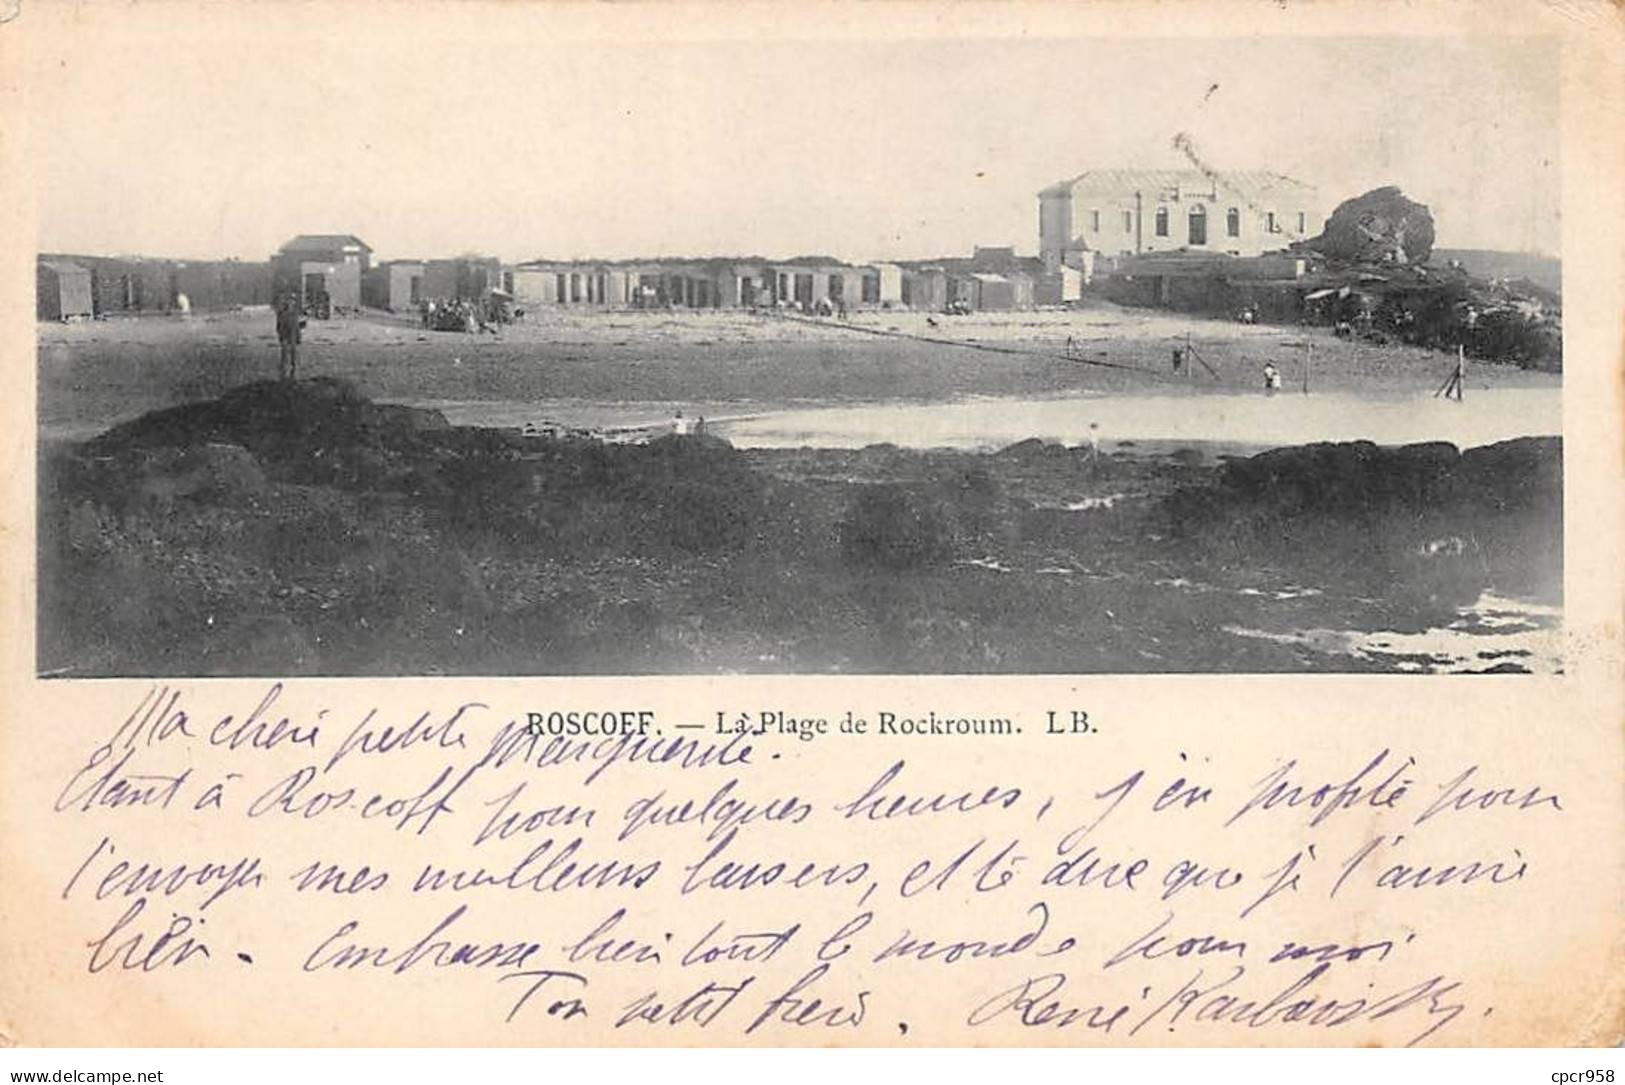 ROSCOFF. — La Plage de Rockroum. LB.
Ma chèri petite Marguerite.
Etant à Roscoff pour quelques heures, j'en profite pour
t'envoyer mes meilleurs baisers, et te dire que je t'aime
bien. Embrasse bien tout le monde pour moi
Ton petit frère. René Karbowsky.
www.delcampe.net
cpcr958